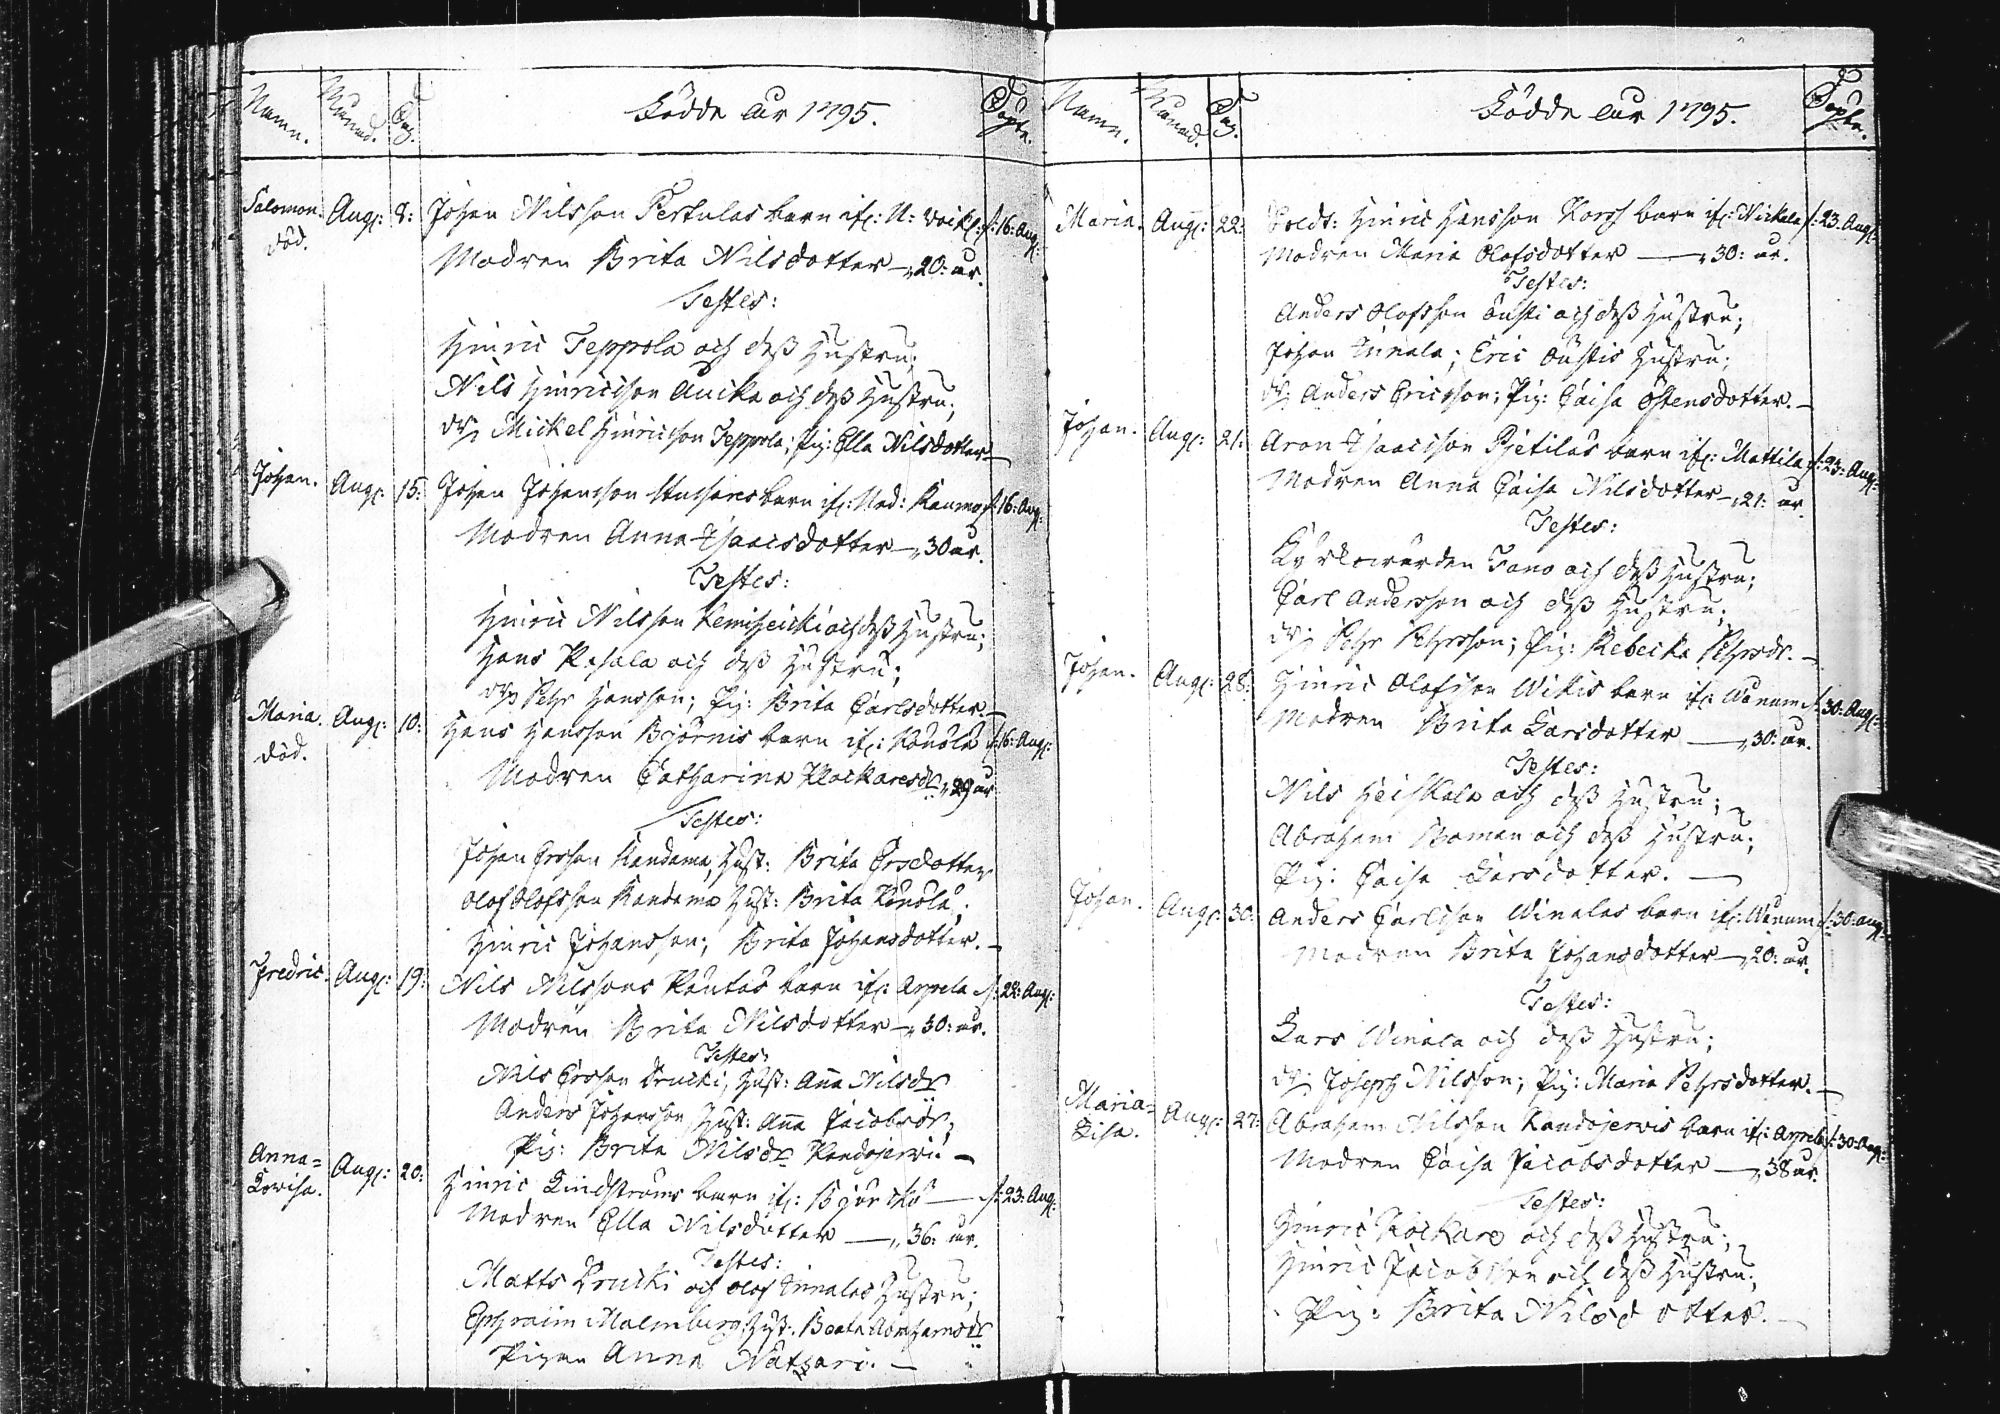 Namn. Månad. Dag. Födde åur 1795. Döpte.
Salomon. Aug: 8: Johan Nilsson Pertulas barn if: N: Woik: d: 16: Aug:
död.
Modren Brita Nilsdotter — 20: år.
Testes:
Hinric Teppola och deß Hustru;
Nils Hinricsson Auika och deß Hustru;
Mickel Hinricsson Teppola; Pig: Ella Nilsdotter
Johan. Aug: 15: Johan Johansson barn if: Ned: Kaumo d: 16: Aug:
Modren Anna Isaacsdotter — 30 år.
Testes:
Hinric Nilsson Kemiheicki och deß Hustru;
Hans och deß Hustru;
Pehr Hansson; Pig: Brita Carlsdotter. —
Maria. Aug: 10: Hans Hansson Björnis barn if: d: 16: Aug:
död.
Modren Catharina Klockaresdr 29 år
Testes:
Johan Ersson Kandama, Hust: Brita Ersdotter
Olof Olofsson Kandama Hust: Brita
Hinric Johansson; Brita Johansdotter. —
Fredric. Aug: 19: Nils Nilssons Rautas barn if: Arpela d: 22: Aug:
Modren Brita Nilsdotter — 30: år.
Testes
Nils Ersson Drucki, Hust: Aña Nilsdr
Anders Johansson Hust: Aña Jacobsdr;
Pig: Brita Nilsdr —
Anna= Aug: 20: Hinric Lindströms barn if: Björckö — d: 23: Aug:
Lovisa.
Modren Ella Nilsdotter — 36: år.
Testes:
Matts Drucki och Olof Innalas Hustru;
Ephraim Malmburg Hust. Beata Abrahamsdr
Pigan Anna —
Namn. Månad. Dag. Födde åur 1795. Döpte.
Maria. Aug: 22: Soldt: Hinric Hansson Korp barn if: Nickala d: 23. Aug:
Modren Maria Olofsdotter — 30: år.
Testes:
Anders Olofsson Ousti och deß Hustru;
Johan Innala; Eric Oustis Hustru;
Anders Ericsson; Pig: Caisa Östensdotter. —
Johan. Aug: 21: Aron Isaacsson Pjetilas barn if: Mattila d: 23: Aug:
Modren Anna Caisa Nilsdotter — 21: år.
Testes:
Kyrkowärden Fano och deß Hustru;
Carl Andersson och deß Hustru;
Pehr Pehrsson; Pig: Rebecka Pehrsdr. —
Johan. Aug: 28: Hinric Olofsson Wikis barn if: Wånum d: 30: Aug:
Modren Brita Larsdotter — 30: år.
Testes:
Nils Heiskala och deß Hustru;
Abraham Boman och deß Hustru;
Pig: Caisa Larsdotter. —
Johan. Aug: 30: Anders Carlsson Winalas barn if: Wånum d: 30: Aug:
Modren Brita Johansdotter — 20: år.
Testes:
Lars Winala och deß Hustru;
Joseph Nilsson; Pig: Maria Pehrsdotter. —
Maria= Aug: 27: Abraham Nilsson Kandojerwis barn if: Arpela d: 30: Aug:
Lisa.
Modren Caisa Jacobsdotter — 38 år.
Testes:
Hinric och deß Hustru;
Hinric Jacobsson och deß Hustru;
Pig: Brita Nilsdotter. —